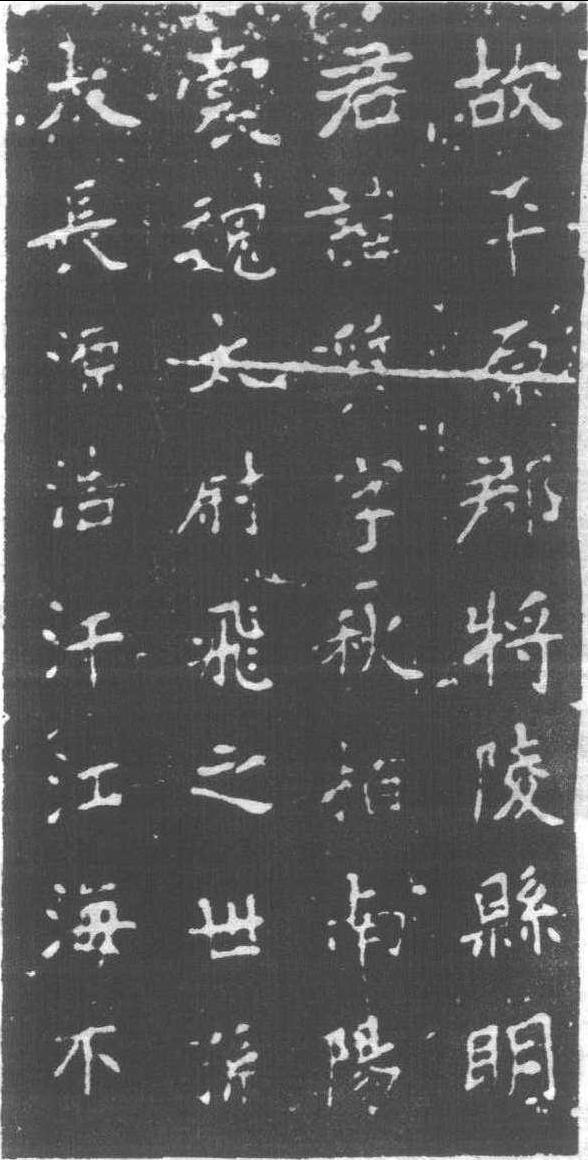 故平原郡將陵縣明
君諱質字秋南陽
太尉飛之世孫
夫長源浩汗江海不